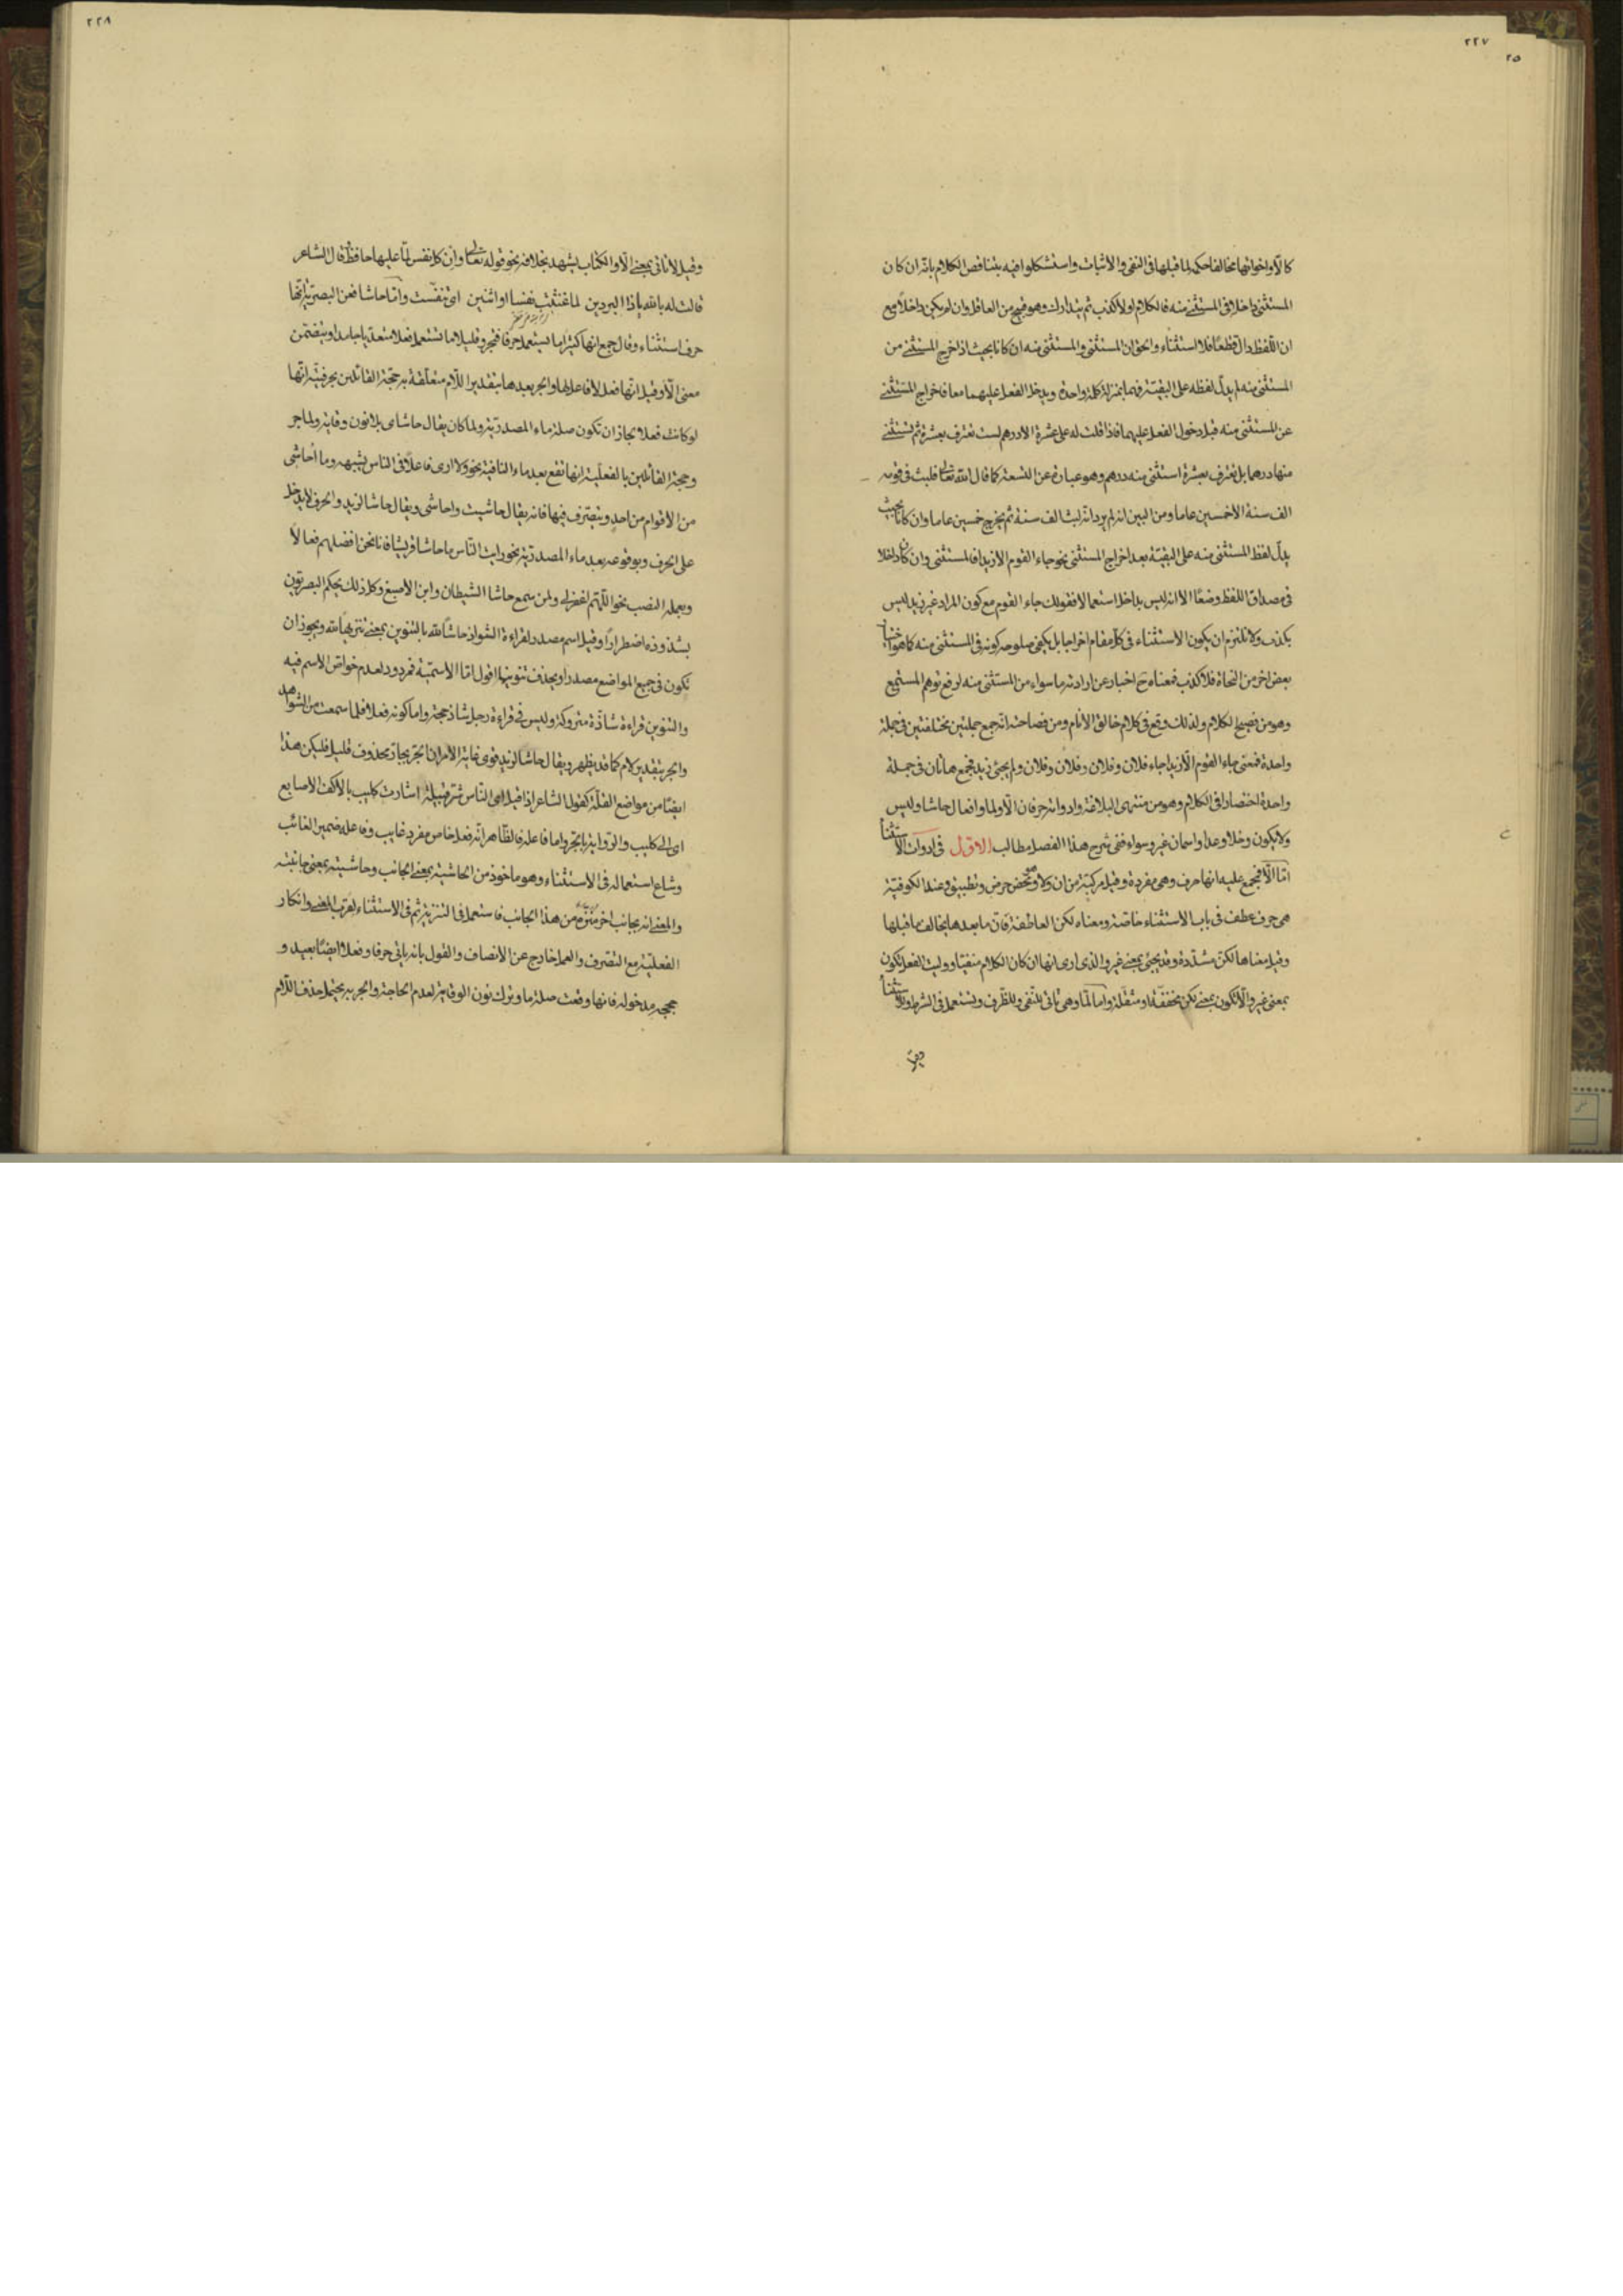 ٢٢٧
٢٥
كالّا واخواتها مخالفا حكمه لما قبلها فى النفى والاثبات واستشكلوا فيه بتناقض الكلام بانّه ان كان
المستثنى داخلا فى المستثنى منه فالكلام اولا كذب ثم يتدارك وهو قبيح من العاقل وان لم يكن داخلا مع
ان اللّفظ دالّ قطعًا فلا استثناء والحق ان المستثنى والمستثنى منه ان كانا بحيث اذا خرج المستثنى من
المستثنى منه لم يدلّ لفظه على البقيّة فهما بمنزلة كلمة واحدة ويدخل الفعل عليهما معا فاخراج المستثنى
عن المستثنى منه قبل دخول الفعل عليهما فاذا قلت له على عشرة الا درهم لست تعترف بعشرة ثم تستثنى
منها درهما بل تعترف بعشرة استثنى منه درهم وهو عبارة عن التسعة كما قال اللّه تعالى فلبث فى قومه
الف سنة الا خمسين عاما ومن البين انه لم يرد انّه لبث الف سنة ثم يخرج خمسين عاما وان كانا بحيث
يدلّ لفظ المستثنى منه على البقيّة بعد اخراج المستثنى نحو جاء القوم الا زيدا فالمستثنى وان كان داخلا
فى مصداق اللفظ وضعًا الا انه ليس بداخل استعمالا فقولك جاء القوم مع كون المراد غير زيد ليس
بكذب ولا نلتزم ان يكون الاستثناء فى كلّ مقام اخراجا بل يكفى صلوحه كونه فى المستثنى منه كما هو
بعض اخر من النحاة فلا كذب فمعناه ح اخبار عن ارادته ما سواء من المستثنى منه لرفع توهم المستمع
وهو من فصيح الكلام ولذلك وقع فى كلام خالق الأنام ومن فصاحته انّه جمع جملتين مختلفتين فى جملة
واحدة فمعنى جاء القوم الّا زيدا جاء فلان وفلان وفلان وفلان ولم يجئ زيد فجمع هاتان فى جملة
واحدة اختصارا فى الكلام وهو من منتهى البلاغة وادواته حرفان الّا ولما وافعال حاشا وليس
ولا يكون وخلا وعدا واسمان غير وسواء ففى شرح هذا الفصل مطالب الاوّل فى ادوات الاستثناء
امّا الّا فجمع عليه انها حرف وهى مفردة وقيل مركبة من ان ولا وهو محض خرص وتطبيق وعند الكوفيّة
هى حرف عطف فى باب الاستثناء خاصّة ومعناه لكن العاطفة فانّ ما بعدها يخالف ما قبلها
وقيل معناها لكنّ مشدّدة وقد يجئ بمعنى غير والذى ارى انها ان كان الكلام منفيّا ووليت الفعل تكون
بمعنى غير والّا تكون بمعنى لكن مخفّفة او مثقّلة وامّا لمّا وهى تاتى للنّفى وللظّرف وتستعمل فى الشرط والاستثناء
وقيل
٢٢٨
وقيل لا تاتى بمعنى الّا والكتاب يشهد بخلافه نحو قوله تعالى وان كل نفس لمّا عليها حافظ قال الشاعر
قالت له بالله ياذا البردين لما غنثت نفسا او اثنين اى تنفّست وامّا حاشا فعن البصريّة انّها
حرف استثناء وقال جمع انها كثيرا ما يستعمل حرفا فتجر وقليلا ما تستعمل فعلا متعديا جامدا ويتضمن
معنى الّا وقيل انّها فعل لا فاعل لها والجر بعدها بتقدير اللّام متعلقة به حجّة القائلين بحرفيّته انّها
لو كانت فعلا لجاز ان تكون صلة ماء المصدريّة ولما كان يقال حاشاى بلا نون وقاية ولما جر
وحجة القائلين بالفعليّة انها تقع بعد ماء النافية نحو ولا ارى فاعلًا فى الناس يشبهه وما أحاشى
من الاقوام من احد ويتصّرف فيها فانه يقال حاشيت واحاشى ويقال حاشا لزيد والحرف لا يدخل
على الحرف وبوقوعه بعد ماء المصدريّة نحو رايت النّاس ما حاشا قريشا فانا نحن افضلهم فعالا
وبعمله النصب نحو اللّهم اغفر لى ولمن سمع حاشا الشيطان وابن الاصبغ وكل ذلك يحكم البصريّون
بشذوذه اضطرارًا وقيل اسم مصدر لقراءة الشواذ حاشًا لله بالتنوين بمعنى تنزيهًا لله ويجوز ان
تكون فى جميع المواضع مصدرا ويحذف تنوينها اقول امّا الاسميّة فمردود لعدم خواصّ الاسم فيه
والتنوين قراءة شاذّة متروكة وليس فى قراءة رجل شاذ حجة واما كونه فعلا فلما سمعت من الشواهد
والجر بتقدير لام كما قد يظهر ويقال حاشا لزيد فوى غاية الامر ان الجر بجارّ محذوف قليل فليكن هذا
ايضًا من مواضع القلّة كقول الشاعر اذا قيل اىّ النّاس شرّ قبيلة اشارت كليب بالاكفّ الاصابع
اى الى كليب والرّواية بالجر واما فاعله فالظّاهر انّه فعل خاص مفرد غايب وفاعله ضمير الغائب
وشاع استعماله فى الاستثناء وهو ماخوذ من الحاشية بمعنى الجانب وحاشيته بمعنى جانبته
والمعنى انه بجانب اخر منزّه من هذا الجانب فاستعمل فى التنزيه ثم فى الاستثناء لقرب المعنى وانكار
الفعليّة مع التصّرف والعمل خارج عن الانصاف والقول بانه ياتى حرفا وفعلا ايضًا بعيد و
مدخوله فانها وقعت صلة ما وترك نون الوقاية لعدم الحاجة والجر به يحتمل حذف اللّام